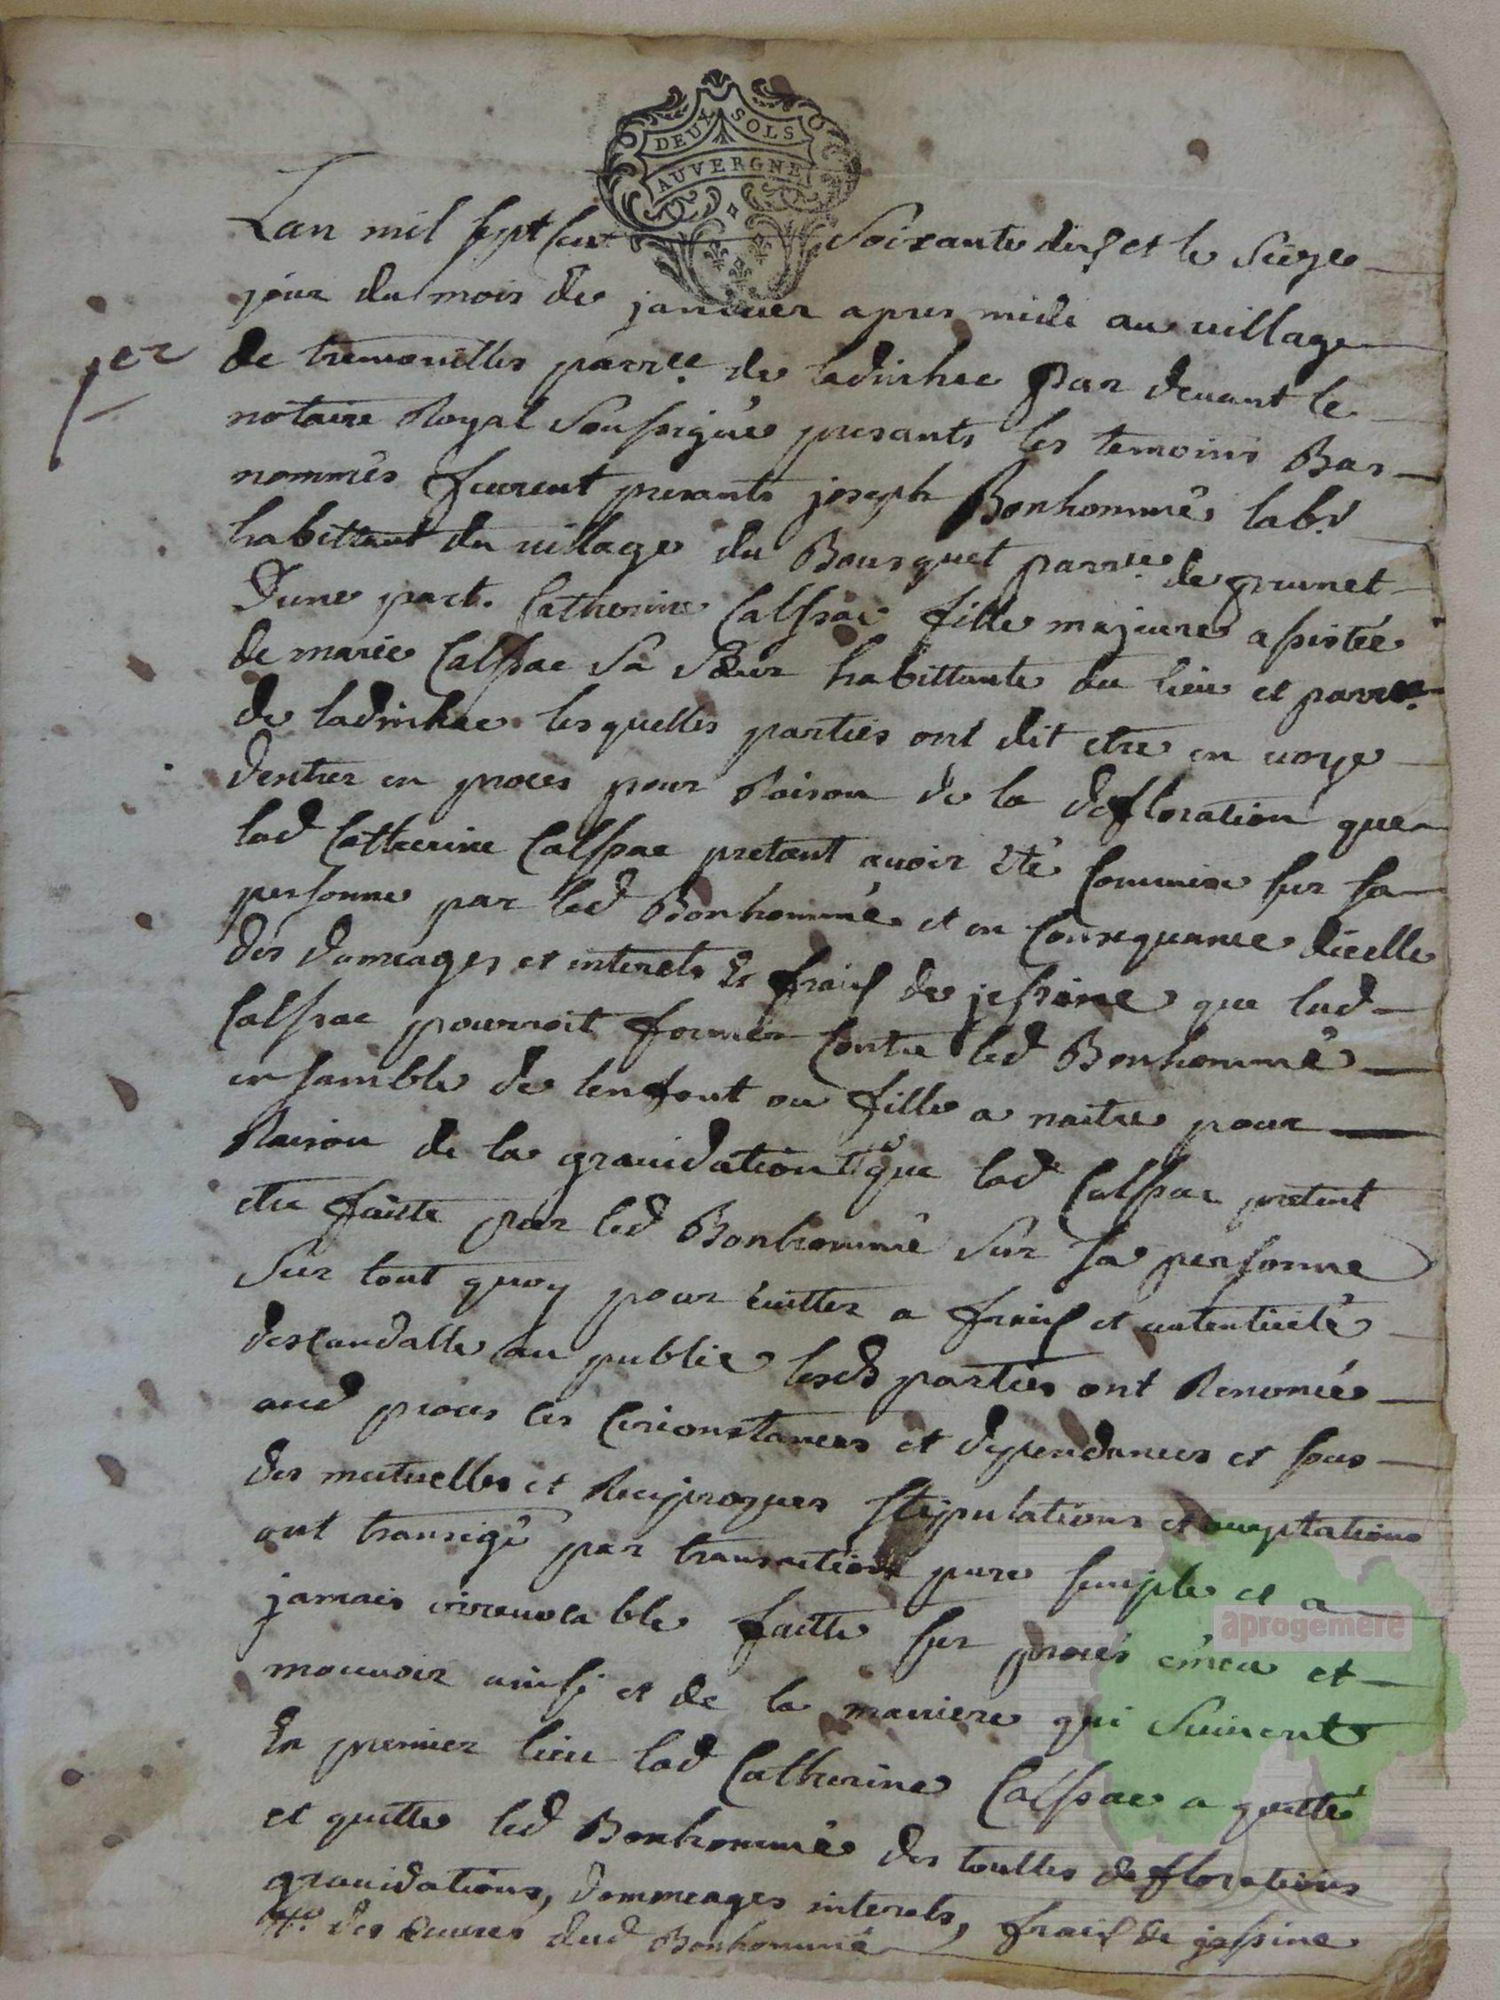 DEUX SOLS
AUVERGNE
Lan mil sept cent soixante dix et le seize
jour du mois de janvier apres midi au village
1er
de tremouilles parr.e de ladinhac par devant le
notaire Royal soussigné presants les temoins Bas
nommés feurent presants joseph Bonhomme lab.r
habittant du village du Bousquet parr.e de prunet
D'une part. Catherine Calsac fille majeure assistée
de marie Calsac sa sœur habittante du lieu et parr.e
de ladinhac lesquelles parties ont dit etre en voye
dentrer en proces pour Raison de la defloration que
lad Catherine Calsac pretant avoir été Commise sur sa
personne par led Bonhomme et en Consequance dicelle
des dommages et interets & fraix de jessine que lad
Calsac pourroit former Contre led Bonhomme
ensamble de lenfant ou fille a naitre pour
Raison de la gravidation que lad Calsac pretent
etre faitte par led Bonhomme sur sa personne
sur tout quoy pour evitter a fraix et autenticité
descandalle au public lesd parties ont Renoncé
aud proces ces Circonstances et dependances et sous
des mutuelles et Reciproques stipulations et acceptations
ont transigé par transaction pure simple et a
jamais irrevocable faitte sur procés émeu et
mouvoir ainsi et de la maniere qui suivent
En premier lieu lad Catherine Calsac a quitté
et quitte led Bonhomme des touttes deflorations
gravidations, dommeages interets, fraix de jessine
des œuvres dud Bonhomme
aprogemere